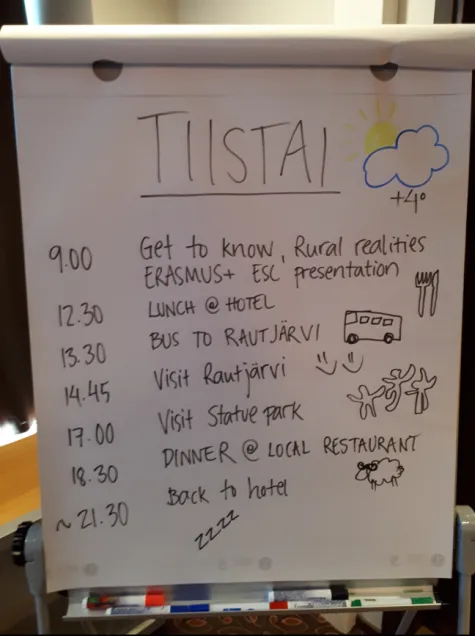 TIISTAI
+4°
9.00 Get to know, Rural realities
ERASMUS+ ESC presentation
12.30 LUNCH @ HOTEL
13.30 BUS TO RAUTJÄRVI
14.45 Visit Rautjärvi
17.00 Visit Statue park
18.30 DINNER @ LOCAL RESTAURANT
~ 21.30 Back to hotel
zzzz